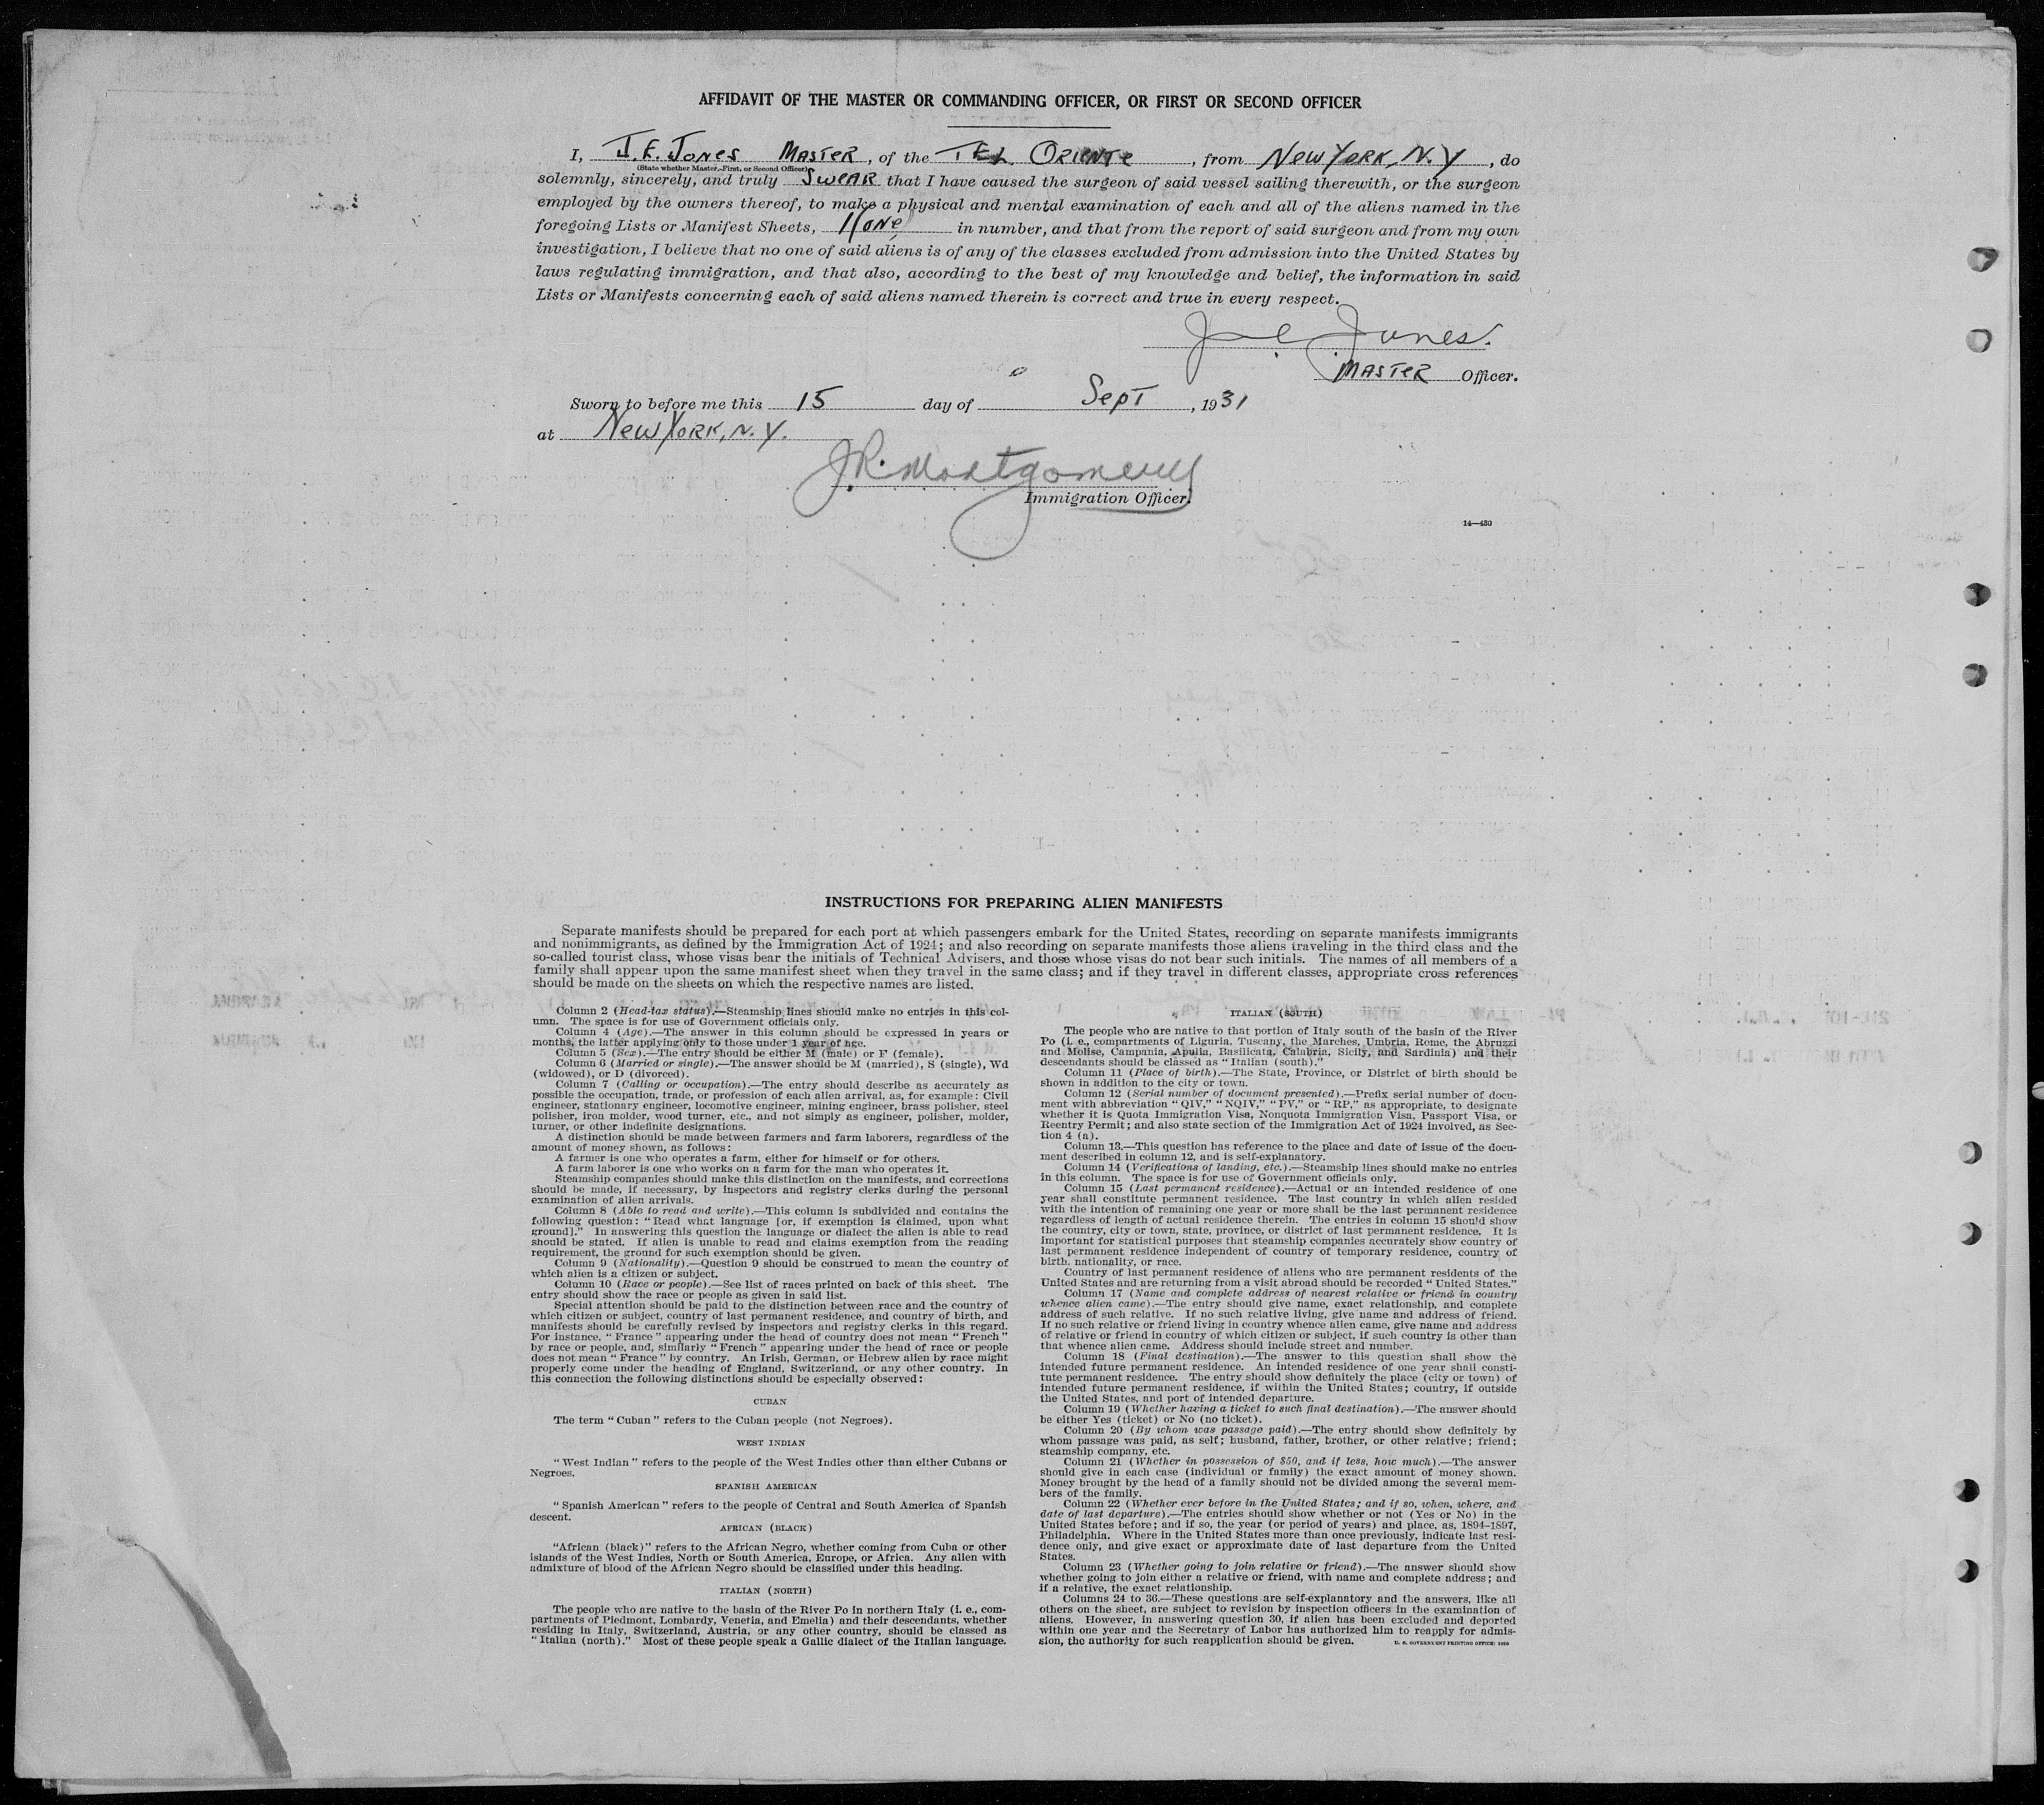 AFFIDAVIT OF THE MASTER OR COMMANDING OFFICER, OR FIRST OR SECOND OFFICER
I, J.E. Jones Master, of the TEL Oriente, from New York, N.Y, do
(State whether Master, First, or Second Officer)
solemnly, sincerely, and truly Swear that I have caused the surgeon of said vessel sailing therewith, or the surgeon
employed by the owners thereof, to make a physical and mental examination of each and all of the aliens named in the
foregoing Lists or Manifest Sheets, in number, and that from the report of said surgeon and from my own
investigation, I believe that no one of said aliens is of any of the classes excluded from admission into the United States by
laws regulating immigration, and that also, according to the best of my knowledge and belief, the information in said
Lists or Manifests concerning each of said aliens named therein is correct and true in every respect.
J E Jones.
Master Officer.
Sworn to before me this 15 day of Sept, 1931
at New York, N.Y.
J.R. Montgomery
Immigration Officer.
14—430
INSTRUCTIONS FOR PREPARING ALIEN MANIFESTS
Separate manifests should be prepared for each port at which passengers embark for the United States, recording on separate manifests immigrants
and nonimmigrants, as defined by the Immigration Act of 1924; and also recording on separate manifests those aliens traveling in the third class and the
so-called tourist class, whose visas bear the initials of Technical Advisers, and those whose visas do not bear such initials. The names of all members of a
family shall appear upon the same manifest sheet when they travel in the same class; and if they travel in different classes, appropriate cross references
should be made on the sheets on which the respective names are listed.
Column 2 (Head-tax status).—Steamship lines should make no entries in this col-
umn. The space is for use of Government officials only.
Column 4 (Age).—The answer in this column should be expressed in years or
months, the latter applying only to those under 1 year of age.
Column 5 (Sex).—The entry should be either M (male) or F (female).
Column 6 (Married or single).—The answer should be M (married), S (single), Wd
(widowed), or D (divorced).
Column 7 (Calling or occupation).—The entry should describe as accurately as
possible the occupation, trade, or profession of each alien arrival, as, for example: Civil
engineer, stationary engineer, locomotive engineer, mining engineer, brass polisher, steel
polisher, iron molder, wood turner, etc., and not simply as engineer, polisher, molder,
turner, or other indefinite designations.
A distinction should be made between farmers and farm laborers, regardless of the
amount of money shown, as follows:
A farmer is one who operates a farm, either for himself or for others.
A farm laborer is one who works on a farm for the man who operates it.
Steamship companies should make this distinction on the manifests, and corrections
should be made, if necessary, by inspectors and registry clerks during the personal
examination of alien arrivals.
Column 8 (Able to read and write).—This column is subdivided and contains the
following question: "Read what language [or, if exemption is claimed, upon what
ground]." In answering this question the language or dialect the alien is able to read
should be stated. If alien is unable to read and claims exemption from the reading
requirement, the ground for such exemption should be given.
Column 9 (Nationality).—Question 9 should be construed to mean the country of
which alien is a citizen or subject.
Column 10 (Race or people).—See list of races printed on back of this sheet. The
entry should show the race or people as given in said list.
Special attention should be paid to the distinction between race and the country of
which citizen or subject, country of last permanent residence, and country of birth, and
manifests should be carefully revised by inspectors and registry clerks in this regard.
For instance, "France" appearing under the head of country does not mean "French"
by race or people, and, similarly "French" appearing under the head of race or people
does not mean "France" by country. An Irish, German, or Hebrew alien by race might
properly come under the heading of England, Switzerland, or any other country. In
this connection the following distinctions should be especially observed:
CUBAN
The term "Cuban" refers to the Cuban people (not Negroes).
WEST INDIAN
"West Indian" refers to the people of the West Indies other than either Cubans or
Negroes.
SPANISH AMERICAN
"Spanish American" refers to the people of Central and South America of Spanish
descent.
AFRICAN (BLACK)
"African (black)" refers to the African Negro, whether coming from Cuba or other
islands of the West Indies, North or South America, Europe, or Africa. Any alien with
admixture of blood of the African Negro should be classified under this heading.
ITALIAN (NORTH)
The people who are native to the basin of the River Po in northern Italy (i. e., com-
partments of Piedmont, Lombardy, Venetia, and Emelia) and their descendants, whether
residing in Italy, Switzerland, Austria, or any other country, should be classed as
"Italian (north)." Most of these people speak a Gallic dialect of the Italian language.
ITALIAN (SOUTH)
The people who are native to that portion of Italy south of the basin of the River
Po (i. e., compartments of Liguria, Tuscany, the Marches, Umbria, Rome, the Abruzzi
and Molise, Campania, Apulia, Basilicata, Calabria, Sicily, and Sardinia) and their
descendants should be classed as "Italian (south)."
Column 11 (Place of birth).—The State, Province, or District of birth should be
shown in addition to the city or town.
Column 12 (Serial number of document presented).—Prefix serial number of docu-
ment with abbreviation "QIV," "NQIV," "PV," or "RP," as appropriate, to designate
whether it is Quota Immigration Visa, Nonquota Immigration Visa, Passport Visa, or
Reentry Permit; and also state section of the Immigration Act of 1924 involved, as Sec-
tion 4 (a).
Column 13.—This question has reference to the place and date of issue of the docu-
ment described in column 12, and is self-explanatory.
Column 14 (Verifications of landing, etc.).—Steamship lines should make no entries
in this column. The space is for use of Government officials only.
Column 15 (Last permanent residence).—Actual or an intended residence of one
year shall constitute permanent residence. The last country in which alien resided
with the intention of remaining one year or more shall be the last permanent residence
regardless of length of actual residence therein. The entries in column 15 should show
the country, city or town, state, province, or district of last permanent residence. It is
important for statistical purposes that steamship companies accurately show country of
last permanent residence independent of country of temporary residence, country of
birth, nationality, or race.
Country of last permanent residence of aliens who are permanent residents of the
United States and are returning from a visit abroad should be recorded "United States."
Column 17 (Name and complete address of nearest relative or friend in country
whence alien came).—The entry should give name, exact relationship, and complete
address of such relative. If no such relative living, give name and address of friend.
If no such relative or friend living in country whence alien came, give name and address
of relative or friend in country of which citizen or subject, if such country is other than
that whence alien came. Address should include street and number.
Column 18 (Final destination).—The answer to this question shall show the
intended future permanent residence. An intended residence of one year shall consti-
tute permanent residence. The entry should show definitely the place (city or town) of
intended future permanent residence, if within the United States; country, if outside
the United States, and port of intended departure.
Column 19 (Whether having a ticket to such final destination).—The answer should
be either Yes (ticket) or No (no ticket).
Column 20 (By whom was passage paid).—The entry should show definitely by
whom passage was paid, as self; husband, father, brother, or other relative; friend;
steamship company, etc.
Column 21 (Whether in possession of $50, and if less, how much).—The answer
should give in each case (individual or family) the exact amount of money shown.
Money brought by the head of a family should not be divided among the several mem-
bers of the family.
Column 22 (Whether ever before in the United States; and if so, when, where, and
date of last departure).—The entries should show whether or not (Yes or No) in the
United States before; and if so, the year (or period of years) and place, as, 1894–1897,
Philadelphia. Where in the United States more than once previously, indicate last resi-
dence only, and give exact or approximate date of last departure from the United
States.
Column 23 (Whether going to join relative or friend).—The answer should show
whether going to join either a relative or friend, with name and complete address; and
if a relative, the exact relationship.
Columns 24 to 36.—These questions are self-explanatory and the answers, like all
others on the sheet, are subject to revision by inspection officers in the examination of
aliens. However, in answering question 30, if alien has been excluded and deported
within one year and the Secretary of Labor has authorized him to reapply for admis-
sion, the authority for such reapplication should be given.
U. S. GOVERNMENT PRINTING OFFICE: